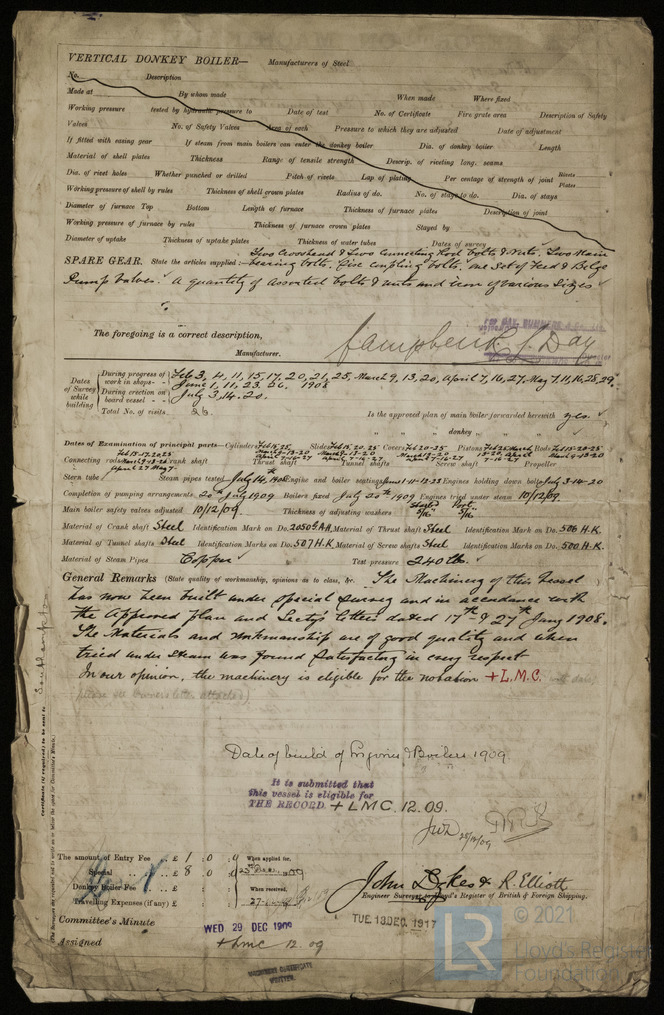 VERTICAL DONKEY BOILER— Manufacturers of Steel
No. Description
Made at By whom made When made Where fixed
Working pressure tested by hydraulic pressure to Date of test No. of Certificate Fire grate area Description of Safety
Valves No. of Safety Valves Area of each Pressure to which they are adjusted Date of adjustment
If fitted with easing gear If steam from main boilers can enter the donkey boiler Dia. of donkey boiler Length
Material of shell plates Thickness Range of tensile strength Descrip. of riveting long. seams
Dia. of rivet holes Whether punched or drilled Pitch of rivets Lap of plating Per centage of strength of joint Rivets Plates
Working pressure of shell by rules Thickness of shell crown plates Radius of do. No. of stays to do. Dia. of stays
Diameter of furnace Top Bottom Length of furnace Thickness of furnace plates Description of joint
Working pressure of furnace by rules Thickness of furnace crown plates Stayed by
Diameter of uptake Thickness of uptake plates Thickness of water tubes Dates of survey
SPARE GEAR. State the articles supplied:— Two Crosshead & Two Connecting Rod bolts & Nuts. Two Main
bearing bolts. Five coupling bolts. one Set of Feed & Bilge
Pump Valves. A quantity of assorted bolts & nuts and iron of various Sizes
The foregoing is a correct description,
Campbell L. Day
Manufacturer.
Dates of Survey while building
During progress of work in shops- - Feb 3, 4, 11, 15, 17, 20, 21, 25, March 9, 13, 20, April 7, 16, 27, May 7, 11, 16, 25, 29,
June 1, 11, 23, 26, 1908
During erection on board vessel- - July 3, 14. 20.
Total No. of visits 26 Is the approved plan of main boiler forwarded herewith yes.
" " " donkey " " "
Dates of Examination of principal parts—Cylinders Slides Covers Pistons Rods
Connecting rods Crank shaft Thrust shaft Tunnel shafts Screw shaft Propeller
Stern tube Steam pipes tested July 14, 1908 Engine and boiler seatings June 1-11-12-23 Engines holding down bolts July 3-14-20
Completion of pumping arrangements 20th July 1909 Boilers fixed July 20th 1909 Engines tried under steam 10/12/09
Main boiler safety valves adjusted 10/12/09 Thickness of adjusting washers Starbd Port
Material of Crank shaft Steel Identification Mark on Do. Material of Thrust shaft Steel Identification Mark on Do. 506 H.K.
Material of Tunnel shafts Steel Identification Marks on Do. 507 H.K. Material of Screw shafts Steel Identification Marks on Do. 500 H.K.
Material of Steam Pipes Copper Test pressure 240 lb.
General Remarks (State quality of workmanship, opinions as to class, &c. The Machinery of this Vessel
has now been built under special survey and in accordance with
the Approved plan and Secty's letters dated 17th & 27th Jany 1908.
The Materials and workmanship are of good quality and when
tried under Steam was found Satisfactory in every respect
In our opinion, the machinery is eligible for the notation + L.M.C. with date,
please see Owners letter attached).
Date of build of Engines & Boilers 1909
It is submitted that
this vessel is eligible for
THE RECORD + LMC 12.09.
The amount of Entry Fee .. £ 1 : 0 : 0 When applied for,
Special .. £ 8 : 0 :
Donkey Boiler Fee .. £ : : When received,
Travelling Expenses (if any) £ : :
John Dykes & R. Elliott
Engineer Surveyor to Lloyd's Register of British & Foreign Shipping.
Committee's Minute WED 29 DEC 1909 TUE. 18 DEC. 1917
Assigned + LMC 12.09
MACHINERY CERTIFICATE
WRITTEN.
LR © 2021
Lloyd's Register
Foundation